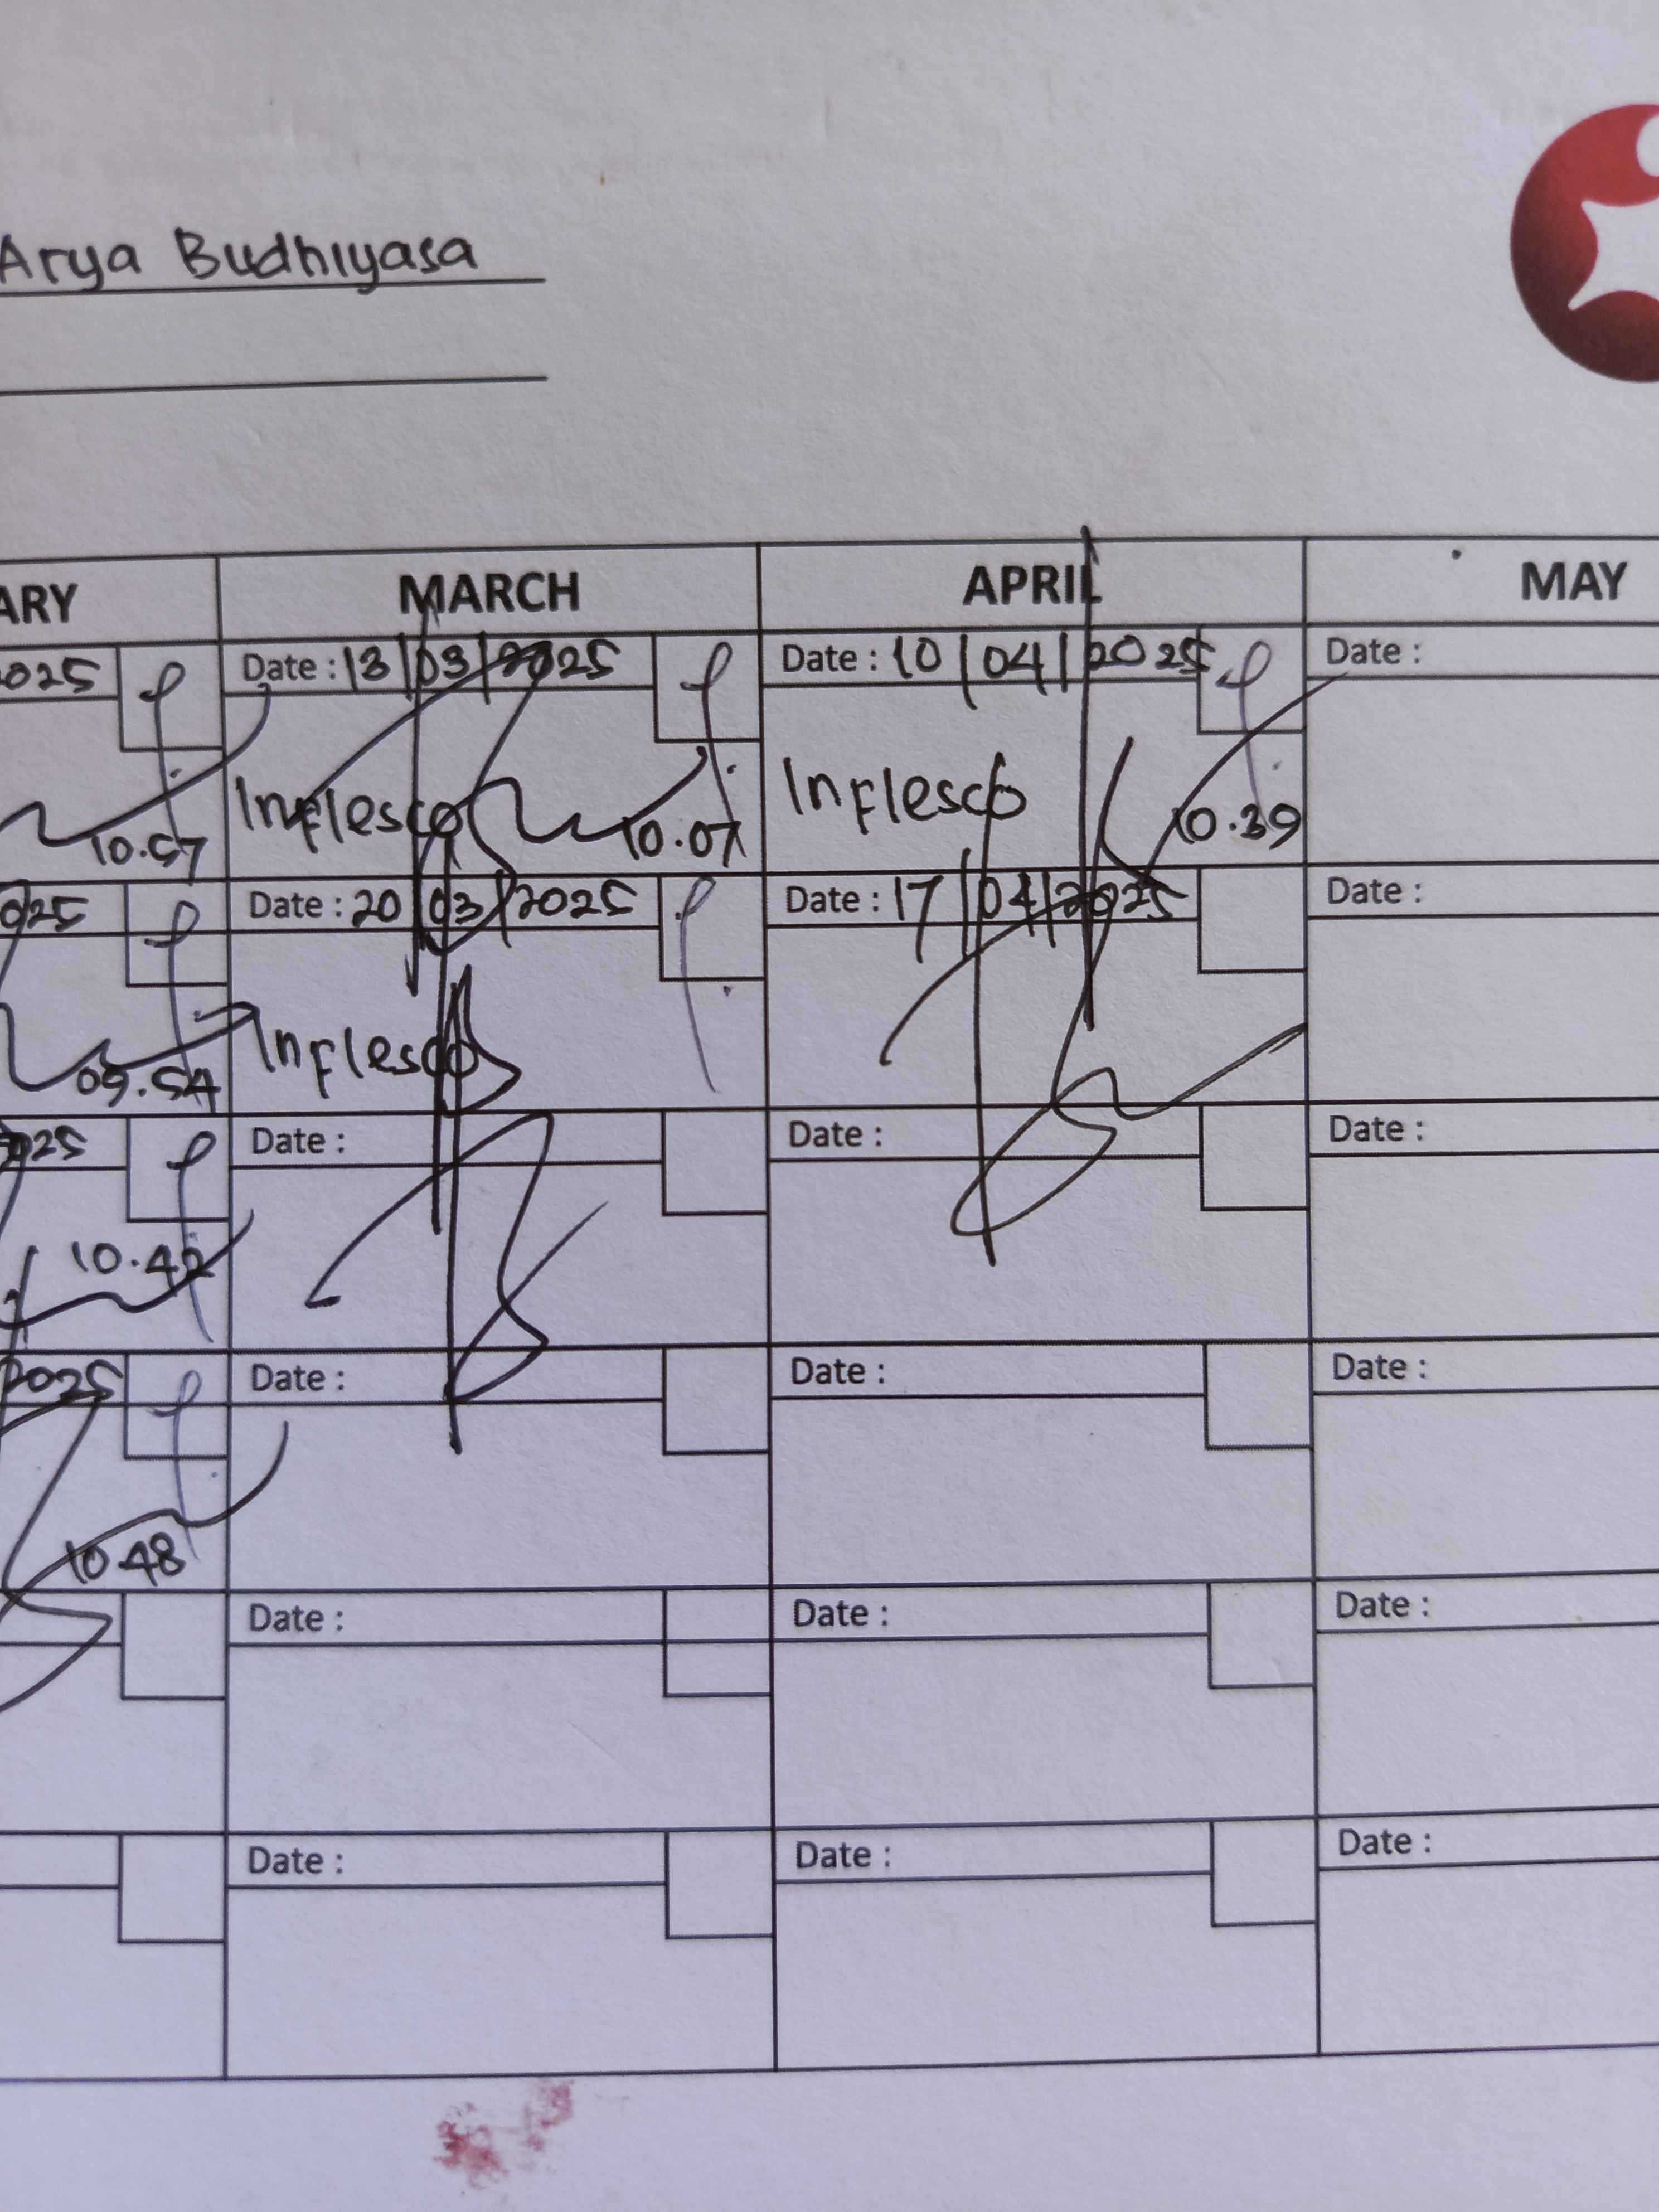 Arya Budhiyasa
ARY MARCH APRIL MAY
2025 Date : 13/03/2025 Date : 10/04/2025 Date :
10.57 Inflesco 10.07 Inflesco 10.39
2025 Date : 20/03/2025 Date : 17/04/2025 Date :
09.54 Inflesco
2025 Date : Date : Date :
10.42
2025 Date : Date : Date :
10.48
Date : Date : Date :
Date : Date : Date :